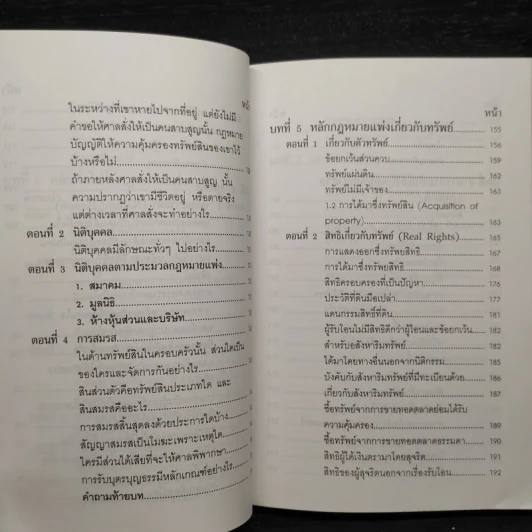 ในระหว่างที่เขาหายไปจากที่อยู่ แต่ยังไม่มี
คำขอให้ศาลสั่งให้เป็นคนสาบสูญนั้น กฎหมาย
บัญญัติให้ความคุ้มครองทรัพย์สินของเขาไว้
บ้างหรือไม่
ถ้าภายหลังศาลสั่งให้เป็นคนสาบสูญ นั้น
ความปรากฏว่าเขามีชีวิตอยู่ หรือตายจริง
แต่ต่างเวลาที่ศาลสั่งจะทำอย่างไร
ตอนที่ 2 นิติบุคคล
นิติบุคคลมีลักษณะทั่วๆ ไปอย่างไร
ตอนที่ 3 นิติบุคคลตามประมวลกฎหมายแพ่ง
1. สมาคม
2. มูลนิธิ
3. ห้างหุ้นส่วนและบริษัท
ตอนที่ 4 การสมรส
ในด้านทรัพย์สินในครอบครัวนั้น ส่วนใดเป็น
ของใครและจัดการกันอย่างไร
สินส่วนตัวคือทรัพย์สินประเภทใด และ
สินสมรสคืออะไร
การสมรสสิ้นสุดลงด้วยประการใดบ้าง
สัญญาสมรสเป็นโมฆะเพราะเหตุใด
ใครมีส่วนได้เสียที่จะให้ศาลพิพากษา
การรับบุตรบุญธรรมมีหลักเกณฑ์อย่างไร
คำถามท้ายบท
หน้า
บทที่ 5 หลักกฎหมายแพ่งเกี่ยวกับทรัพย์ 155
ตอนที่ 1 เกี่ยวกับตัวทรัพย์ 156
ข้อยกเว้นส่วนควบ 159
ทรัพย์แผ่นดิน 162
ทรัพย์ไม่มีเจ้าของ 163
1.2 การได้มาซึ่งทรัพย์สิน (Acquisition of
property) 163
ตอนที่ 2 สิทธิเกี่ยวกับทรัพย์ (Real Rights) 165
การแสดงออกซึ่งทรัพย์สิทธิ 166
การได้มาซึ่งทรัพย์สิทธิ 168
สิทธิครอบครองที่เป็นปัญหา 176
ประวัติที่ดินมือเปล่า 176
แดนกรรมสิทธิ์ที่ดิน 181
ผู้รับโอนไม่มีสิทธิดีกว่าผู้โอนและข้อยกเว้น 182
สำหรับอสังหาริมทรัพย์ 182
ได้มาโดยทางอื่นนอกจากนิติกรรม 185
บังคับกับสังหาริมทรัพย์ที่มีทะเบียนด้วย 186
เกี่ยวกับสังหาริมทรัพย์ 187
ซื้อทรัพย์จากการขายทอดตลาดย่อมได้รับ
ความคุ้มครอง 189
ซื้อทรัพย์จากการขายทอดตลาดธรรมดา 190
สิทธิผู้ได้เงินตรามาโดยสุจริต 191
สิทธิของผู้สุจริตนอกจากเรื่องรับโอน 192